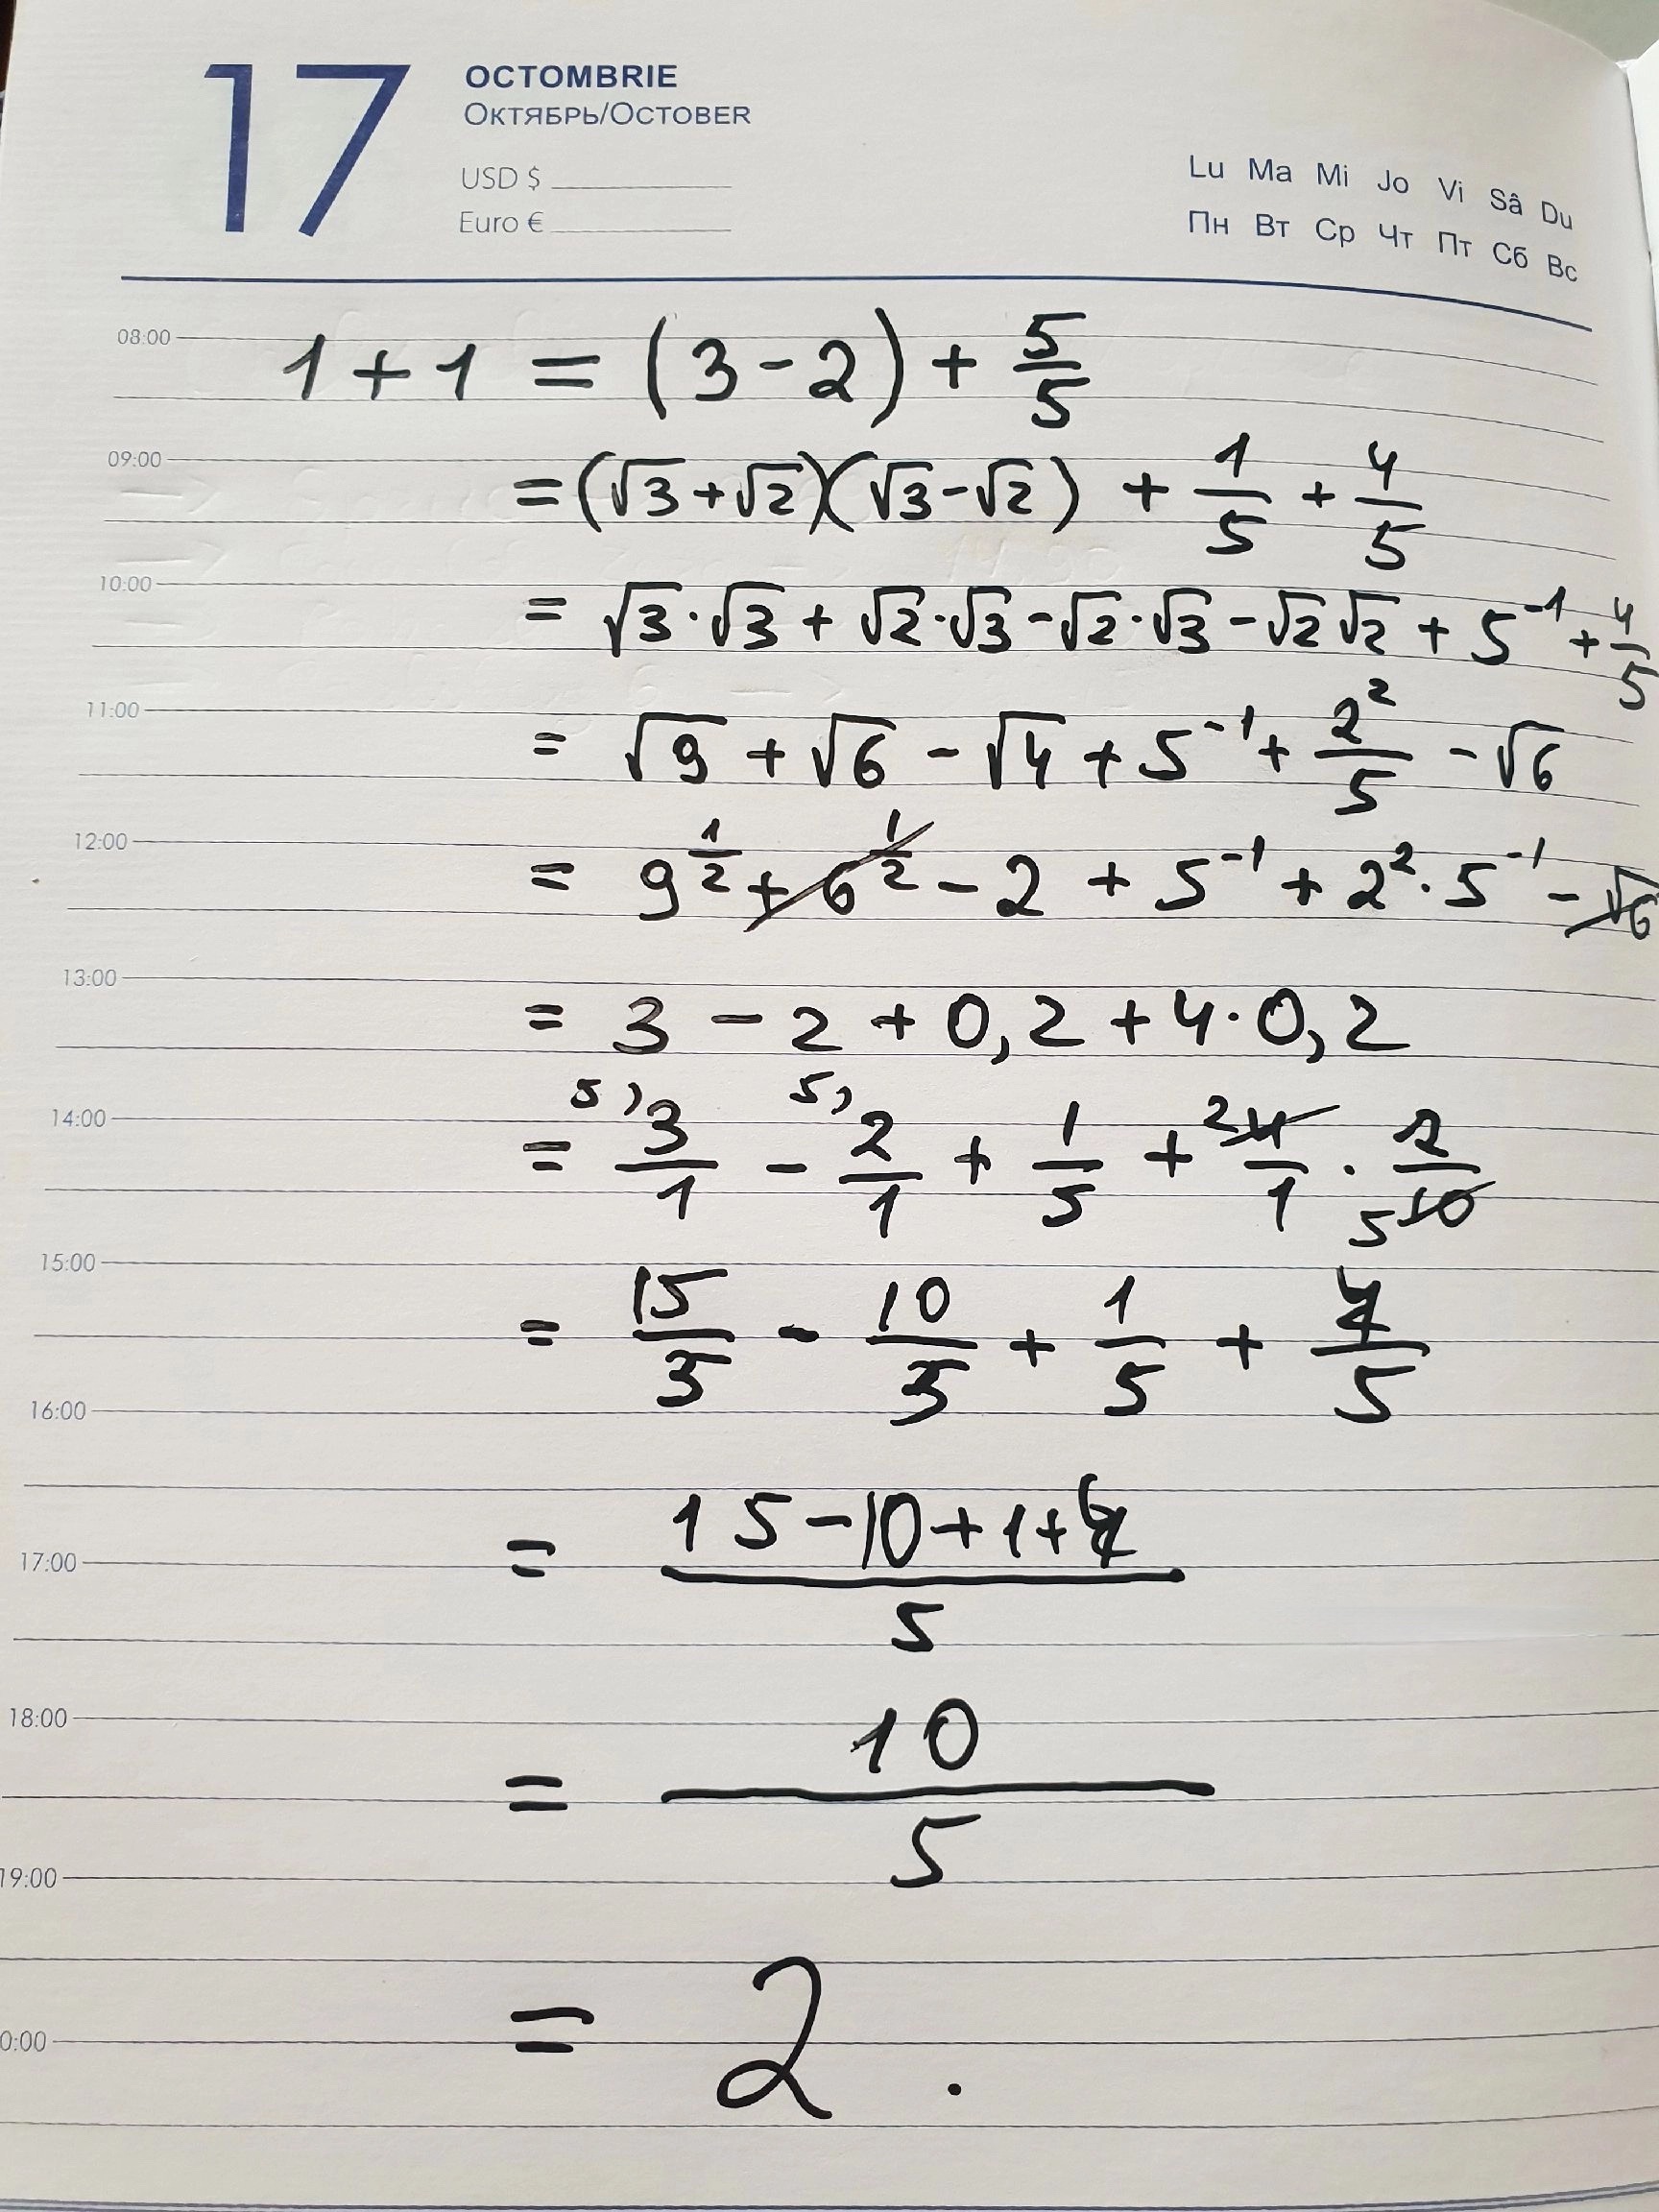 17 OCTOMBRIE
ОКТЯБРЬ/OCTOBER
USD $
Euro €
Lu Ma Mi Jo Vi Sâ Du
Пн Вт Ср Чт Пт Сб Вс
08:00
1 + 1 = (3 - 2) + 5/5
09:00
= (√3 + √2)(√3 - √2) + 1/5 + 4/5
10:00
= √3 · √3 + √2 · √3 - √2 · √3 - √2 √2 + 5^-1 + 4/5
11:00
= √9 + √6 - √4 + 5^-1 + 2^2/5 - √6
12:00
= 9^1/2 + 6^1/2 - 2 + 5^-1 + 2^2 · 5^-1 - √6
13:00
= 3 - 2 + 0,2 + 4 · 0,2
14:00
= 5) 3/1 - 5) 2/1 + 1/5 + 2 4/1 · 2/10 5
15:00
= 15/5 - 10/5 + 1/5 + 4/5
16:00
= 15 - 10 + 1 + 4 / 5
17:00
18:00
= 10/5
19:00
= 2 .
0:00